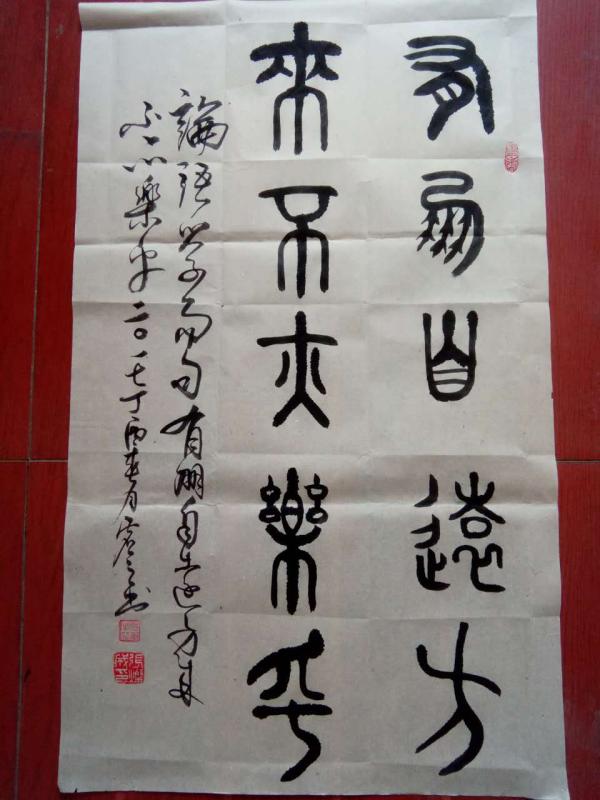 有朋自遠方
來不亦樂乎
論語学而句有朋自遠方来
不亦樂乎二〇一七丁酉春月书